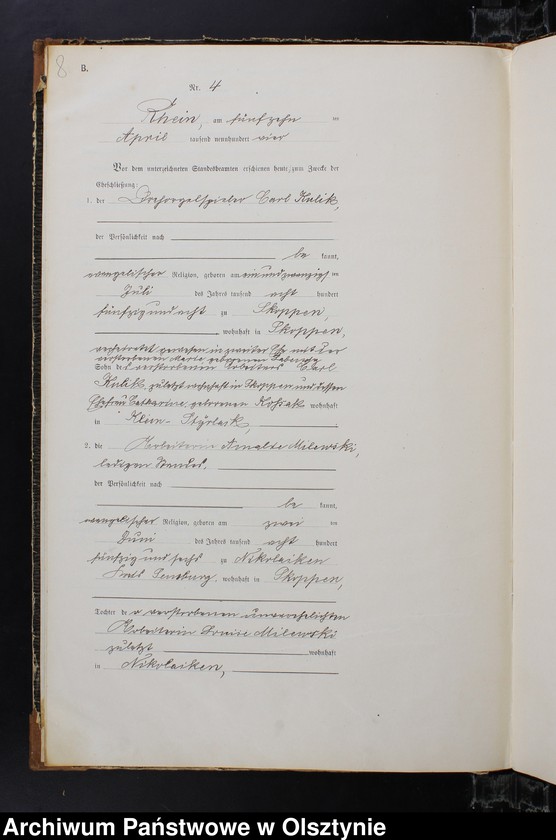 8
B.
Nr. 4
Rhein, am fünfzehn ten
April tausend neunhundert vier
Vor dem unterzeichneten Standesbeamten erschienen heute, zum Zwecke der
Eheschließung:
1. der Drehorgelspieler Carl Kulik,
der Persönlichkeit nach
be kannt,
evangelischer Religion, geboren am einundzwanzigs ten
Juli des Jahres tausend acht hundert
fünfzig und acht zu Skoppen,
wohnhaft in Skoppen,
verheiratet gewesen in zweiter Ehe mit der
verstorbenen Marie geborenen
Sohn des verstorbenen Arbeiters Carl
Kulik, zuletzt wohnhaft in Skoppen und dessen
Ehefrau Catharine geborenen wohnhaft
in Klein-Stürlack,
2. die Arbeiterin Amalie Milewski,
ledigen Standes,
der Persönlichkeit nach
be kannt,
evangelischer Religion, geboren am zwei ten
Juni des Jahres tausend acht hundert
fünfzig und sechs zu Nikolaiken
Kreis Sensburg, wohnhaft in Skoppen,
Tochter der verstorbenen unverehelichten
Arbeiterin Louise Milewski
zuletzt wohnhaft
in Nikolaiken,
Archiwum Państwowe w Olsztynie